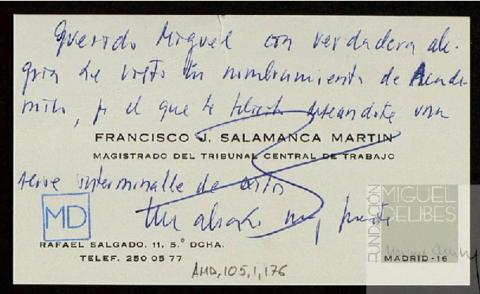 Querido Miguel con verdadera ale-
gría he visto tu nombramiento de Acadé-
mico, por el que te felicito deseandote una
FRANCISCO J. SALAMANCA MARTIN
MAGISTRADO DEL TRIBUNAL CENTRAL DE TRABAJO
serie interminable de éxitos
Un abrazo muy fuerte
MD
RAFAEL SALGADO, 11, 5.º DCHA.
TELEF. 250 05 77
MADRID-16
AMD, 105, 1, 176
FUNDACIÓN
MIGUEL
DELIBES